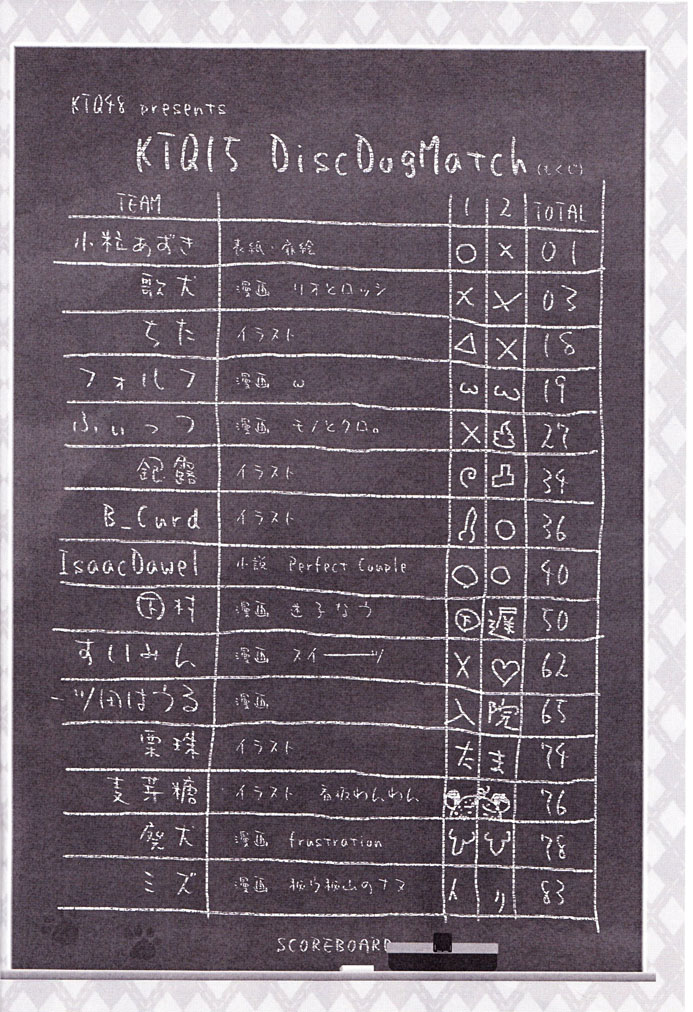 KTQ48 presents
KTQ15 DiscDogMatch (もくじ)
TEAM 1 2 TOTAL
小粒あずき 表紙・扉絵 ○ × 01
歌犬 漫画 リオとロッシ × × 03
ちた イラスト △ × 18
フォルフ 漫画 ω ω ω 19
ふぃっつ 漫画 モノとクロ。 × 27
銀露 イラスト 34
B_Curd イラスト ○ 36
IsaacDawel 小説 Perfect Couple ○ ○ 40
下村 漫画 きろなつ 下 遅 50
すいみん 漫画 スイーーーツ X ♡ 62
一ツ田はうる 漫画 入 院 65
栗珠 イラスト たま 74
麦芽糖 イラスト 看板わんわん 76
廃犬 漫画 frustration 78
ミズ 漫画 83
SCOREBOARD